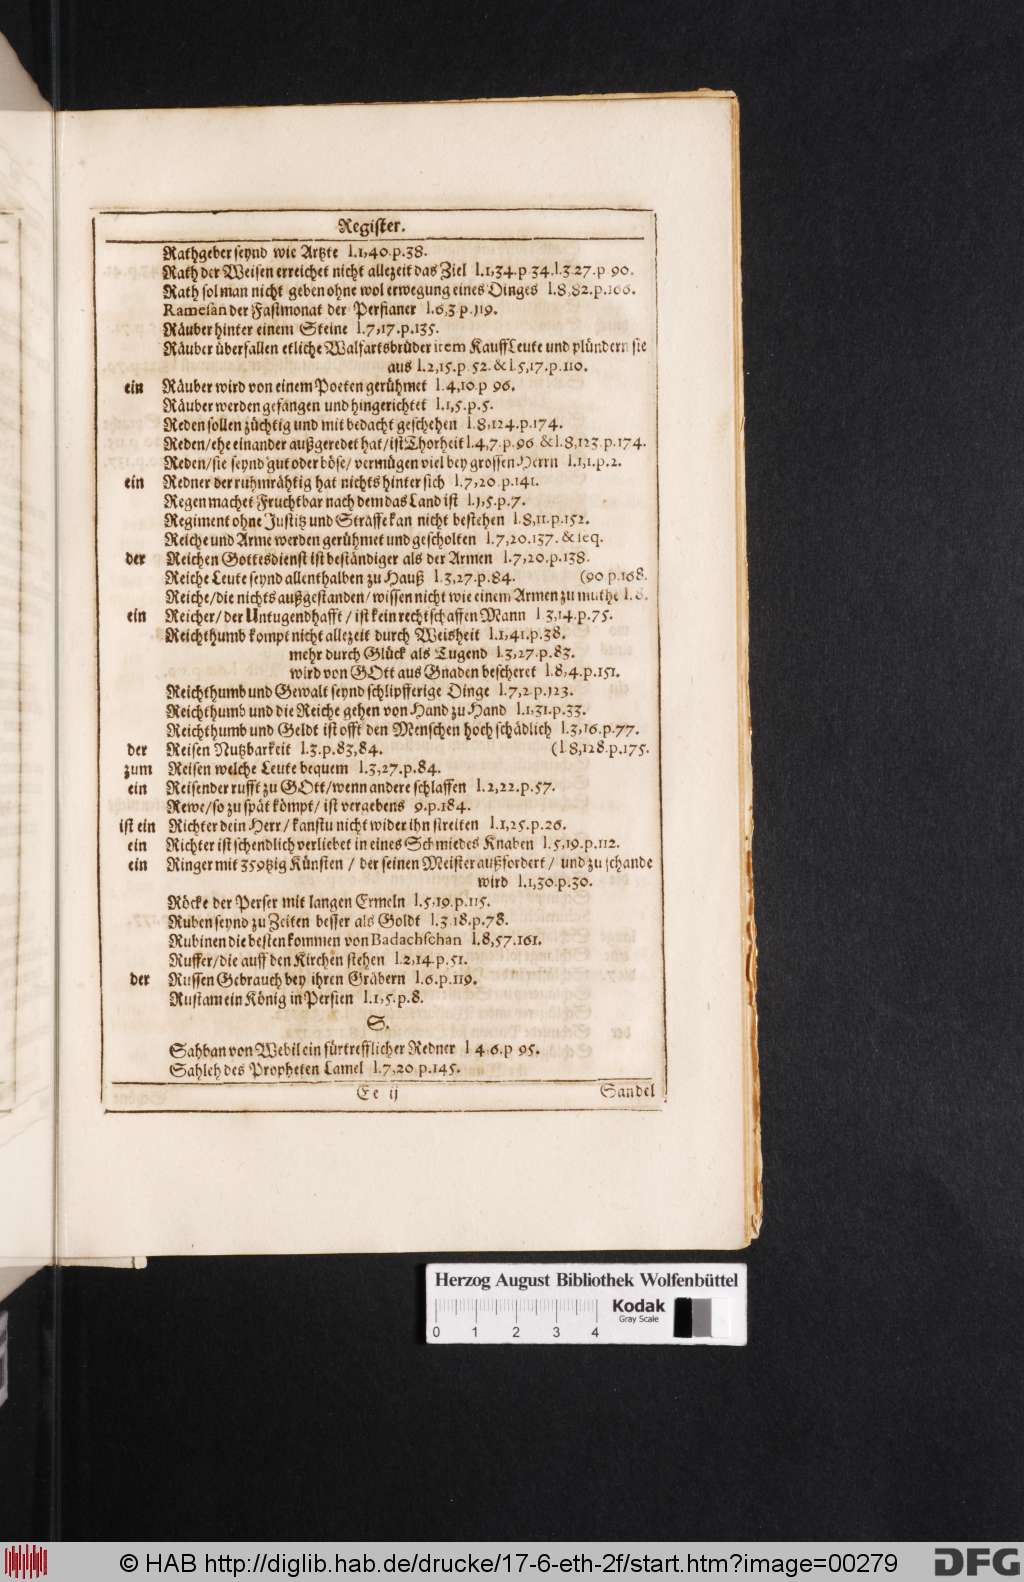 Register.
Rathgeber seynd wie Artzte l.1,40.p.38.
Rath der Weisen erreichet nicht allezeit das Ziel l.1,34.p 34.l.3 27.p 90.
Rath sol man nicht geben ohne wol erwegung eines Dinges l.8,82.p.166.
Ramesan der Fastmonat der Persianer l.6,3 p.119.
Räuber hinter einem Steine l.7,17.p.135.
Räuber überfallen etliche Walfartsbrüder item KauffLeute und plündern sie
aus l.2,15.p 52. & l.5,17.p.110.
ein Räuber wird von einem Poeten gerühmet l.4,10.p 96.
Räuber werden gefangen und hingerichtet l.1,5.p.5.
Reden sollen züchtig und mit bedacht geschehen l.8,124.p.174.
Reden/ ehe einander außgeredet hat/ ist Thorheit l.4,7.p.96 & l.8,123.p.174.
Reden/ sie seynd gut oder böse/ vermügen viel bey grossen Herrn l.1,1.p.2.
ein Redner der ruhmrähtig hat nichts hinter sich l.7,20.p.141.
Regen machet Fruchtbar nach dem das Land ist l.1,5.p.7.
Regiment ohne Justitz und Straffe kan nicht bestehen l.8,11.p.152.
Reiche und Arme werden gerühmet und gescholten l.7,20.137. & seq.
der Reichen Gottesdienst ist beständiger als der Armen l.7,20.p.138.
Reiche Leute seynd allenthalben zu Hauß l.3,27.p.84. (90 p.168.
Reiche/ die nichts außgestanden/ wissen nicht wie einem Armen zu muthe l.8.
ein Reicher/ der Untugendhafft/ ist kein rechtschaffen Mann l 3,14.p.75.
Reichthumb kompt nicht allezeit durch Weisheit l.1,41.p.38.
mehr durch Glück als Tugend l.3,27.p.83.
wird von GOtt aus Gnaden bescheret l.8,4.p.151.
Reichthumb und Gewalt seynd schlipfferige Dinge l.7,2.p.123.
Reichthumb und die Reiche gehen von Hand zu Hand l.1,31.p.33.
Reichthumb und Geldt ist offt den Menschen hochschädlich l.3,16.p.77.
der Reisen Nutzbarkeit l.3.p.83,84. (l 8,128.p.175.
zum Reisen welche Leute bequem l.3,27.p.84.
ein Reisender rufft zu GOtt/ wenn andere schlaffen l.2,22.p.57.
Rewe/ so zu spät kömpt/ ist vergebens 9.p.184.
ist ein Richter dein Herr/ kanstu nicht wider ihn streiten l.1,25.p.26.
ein Richter ist schendlich verliebet in eines Schmiedes Knaben l.5,19.p.112.
ein Ringer mit 359tzig Künsten / der seinen Meister außfordert / und zu schande
wird l.1,30.p.30.
Röcke der Perser mit langen Ermeln l.5,19.p.115.
Ruben seynd zu Zeiten besser als Goldt l.3 18.p.78.
Rubinen die besten kommen von Badachschan l.8,57.161.
Ruffer/ die auff den Kirchen stehen l.2,14.p.51.
der Russen Gebrauch bey ihren Gräbern l.6.p.119.
Rustam ein König in Persien l.1,5.p.8.
S.
Sahban von Webil ein fürtrefflicher Redner l 4,6.p 95.
Sahleh des Propheten Camel l.7,20.p.145.
Ee ij Sandel
Herzog August Bibliothek Wolfenbüttel
Kodak
Gray Scale
0 1 2 3 4
© HAB http://diglib.hab.de/drucke/17-6-eth-2f/start.htm?image=00279
DFG